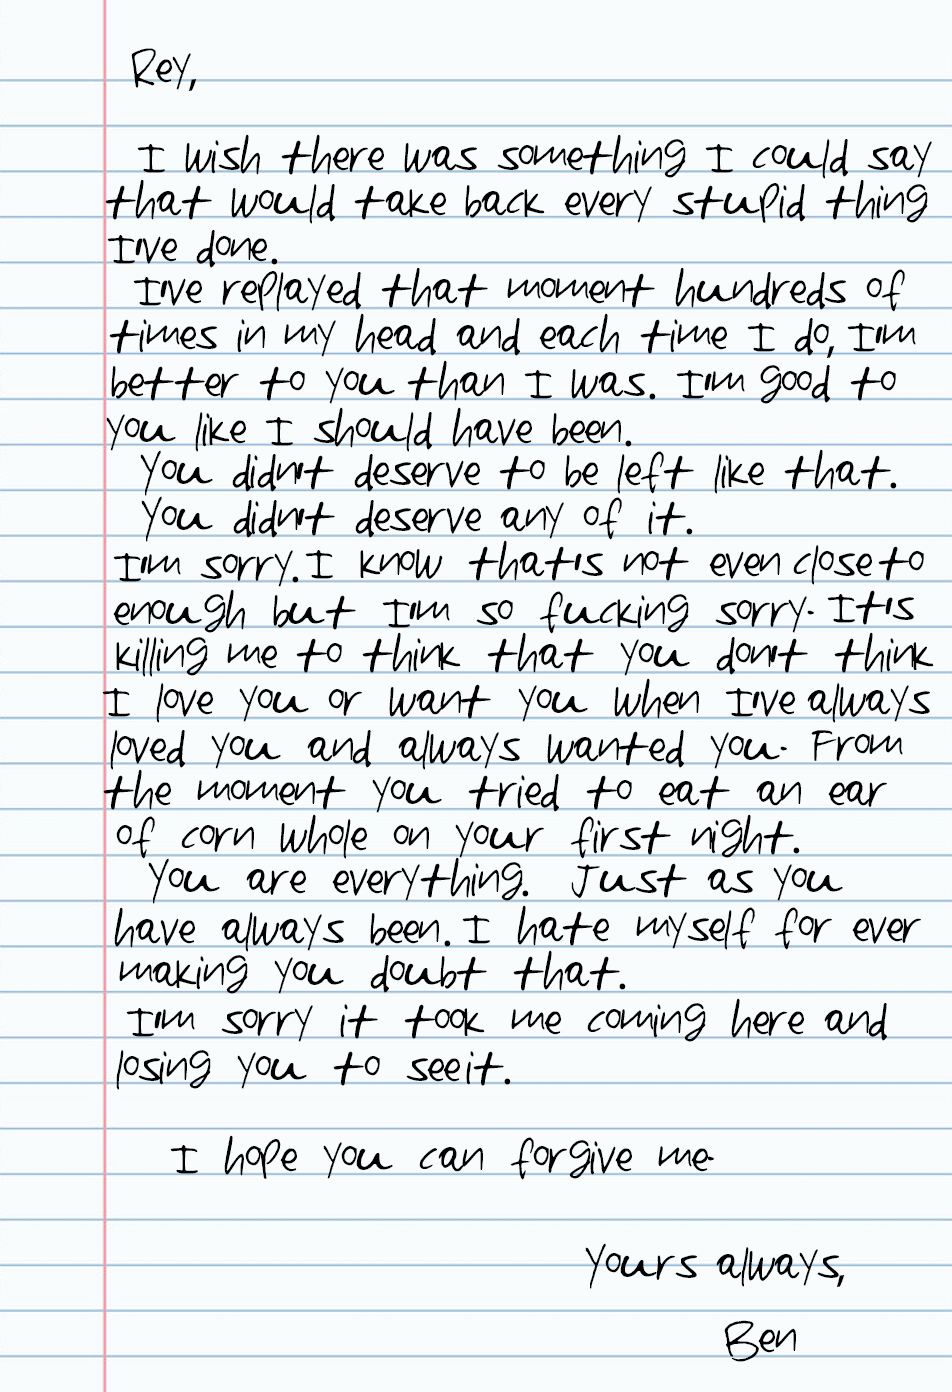 Rey,
I wish there was something I could say
that would take back every stupid thing
I've done.
I've replayed that moment hundreds of
times in my head and each time I do, I'm
better to you than I was. I'm good to
you like I should have been.
You didn't deserve to be left like that.
You didn't deserve any of it.
I'm sorry. I know that's not even close to
enough but I'm so fucking sorry. It's
killing me to think that you don't think
I love you or want you when I've always
loved you and always wanted you. From
the moment you tried to eat an ear
of corn whole on your first night.
You are everything. Just as you
have always been. I hate myself for ever
making you doubt that.
I'm sorry it took me coming here and
losing you to see it.
I hope you can forgive me.
Yours always,
Ben